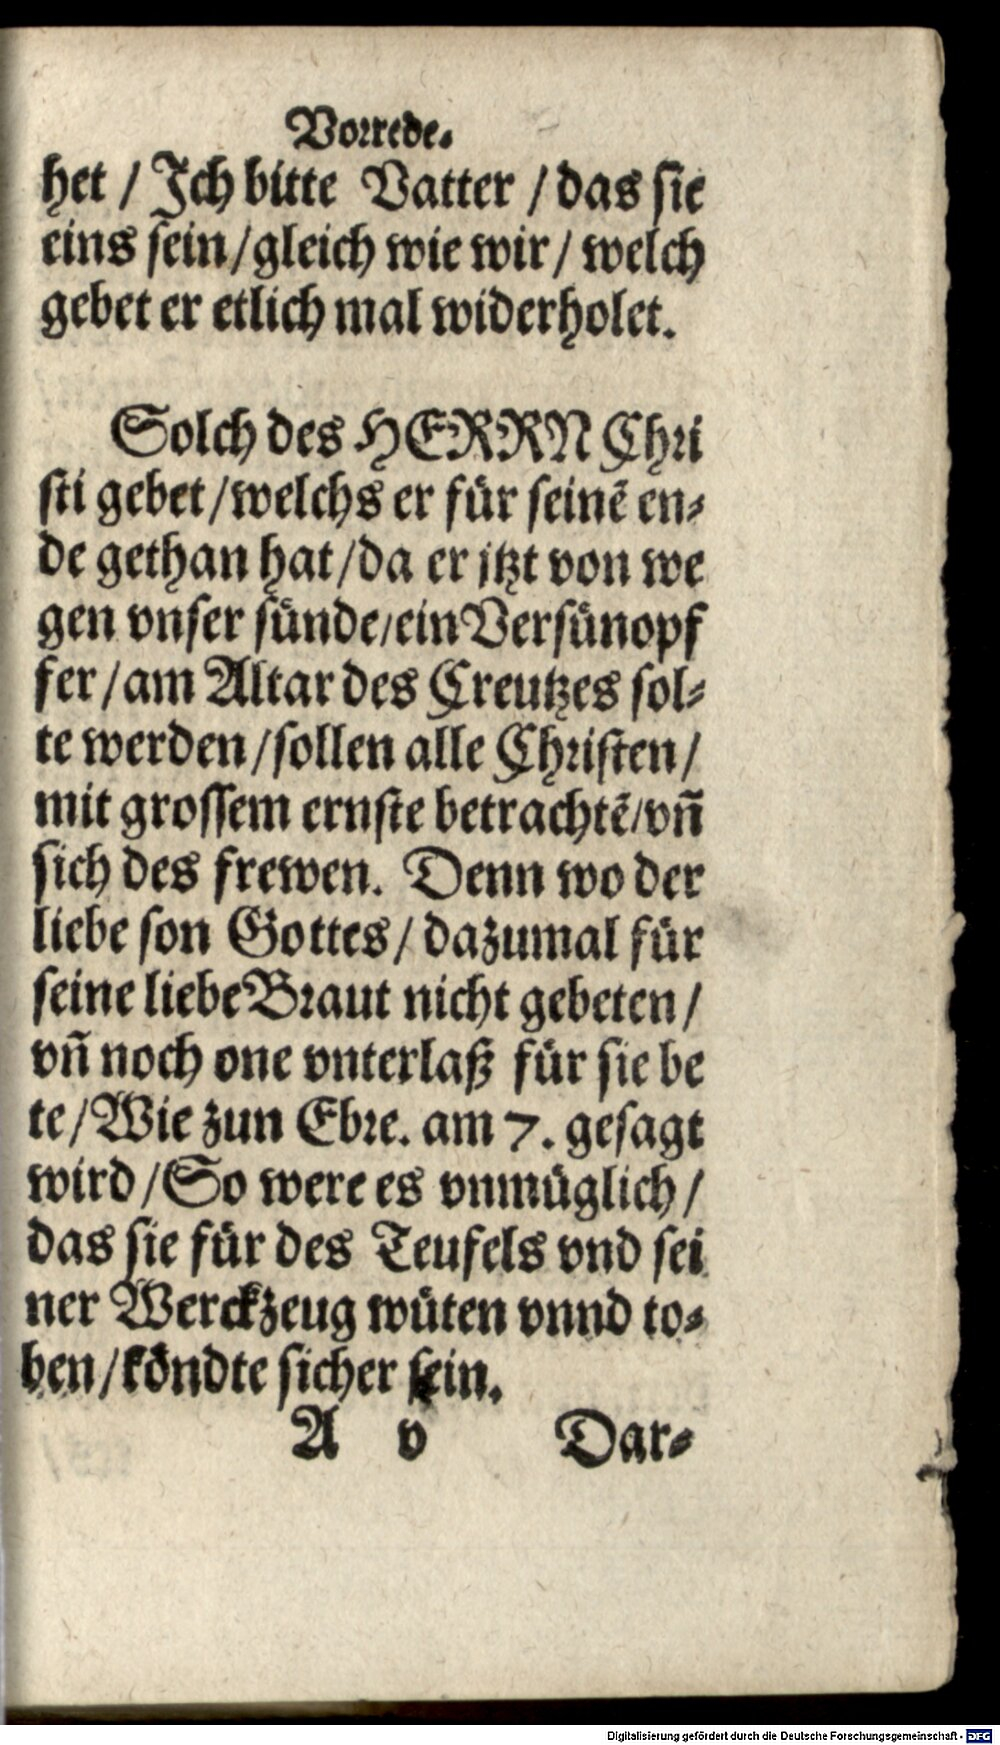 Vorrede.
het / Ich bitte Vatter / das sie
eins sein / gleich wie wir / welch
gebet er etlich mal widerholet.
Solch des HERRN Chri
sti gebet / welchs er für seinẽ en⸗
de gethan hat / da er jtzt von we
gen vnser sünde / ein Versünopf
fer / am Altar des Creutzes sol⸗
te werden / sollen alle Christen /
mit grossem ernste betrachtẽ / vñ
sich des frewen. Denn wo der
liebe son Gottes / dazumal für
seine liebe Braut nicht gebeten /
vñ noch one vnterlaß für sie be
te / Wie zun Ebre. am 7. gesagt
wird / So were es vnmüglich /
das sie für des Teufels vnd sei
ner Werckzeug wüten vnnd to⸗
ben / köndte sicher sein.
A v Dar⸗
Digitalisierung gefördert durch die Deutsche Forschungsgemeinschaft - DFG